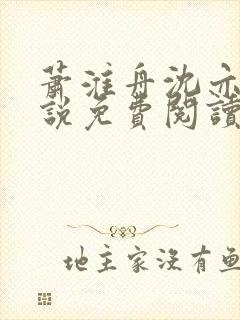 蕭淮舟沈亦
說免費閱讀
地主家沒有魚